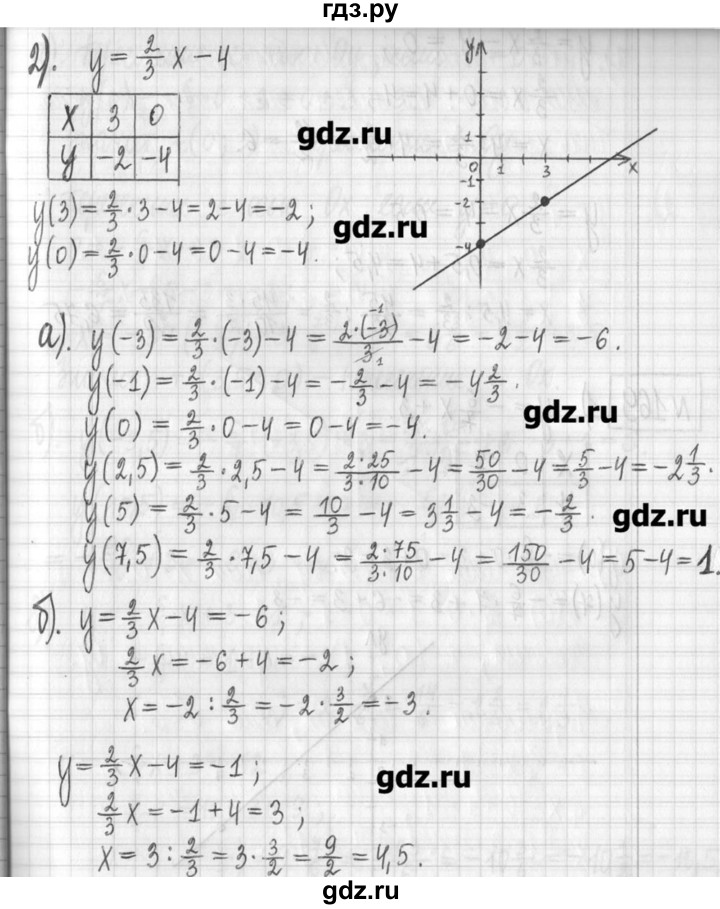 гдз.ру
2). y = 2/3 x − 4
x 3 0
y −2 −4
y(3) = 2/3 · 3 − 4 = 2 − 4 = −2;
y(0) = 2/3 · 0 − 4 = 0 − 4 = −4.
y
1
0 1 3 x
−1
−2
−4
gdz.ru
gdz.ru
а). y(−3) = 2/3 · (−3) − 4 = 2·(−3)/3 − 4 = −2 − 4 = −6.
−1
1
y(−1) = 2/3 · (−1) − 4 = −2/3 − 4 = −4 2/3.
gdz.ru
y(0) = 2/3 · 0 − 4 = 0 − 4 = −4.
y(2,5) = 2/3 · 2,5 − 4 = 2·25/3·10 − 4 = 50/30 − 4 = 5/3 − 4 = −2 1/3.
y(5) = 2/3 · 5 − 4 = 10/3 − 4 = 3 1/3 − 4 = −2/3.
gdz.ru
y(7,5) = 2/3 · 7,5 − 4 = 2·75/3·10 − 4 = 150/30 − 4 = 5 − 4 = 1.
б). y = 2/3 x − 4 = −6;
2/3 x = −6 + 4 = −2;
x = −2 : 2/3 = −2 · 3/2 = −3.
y = 2/3 x − 4 = −1;
gdz.ru
2/3 x = −1 + 4 = 3;
x = 3 : 2/3 = 3 · 3/2 = 9/2 = 4,5.
gdz.ru